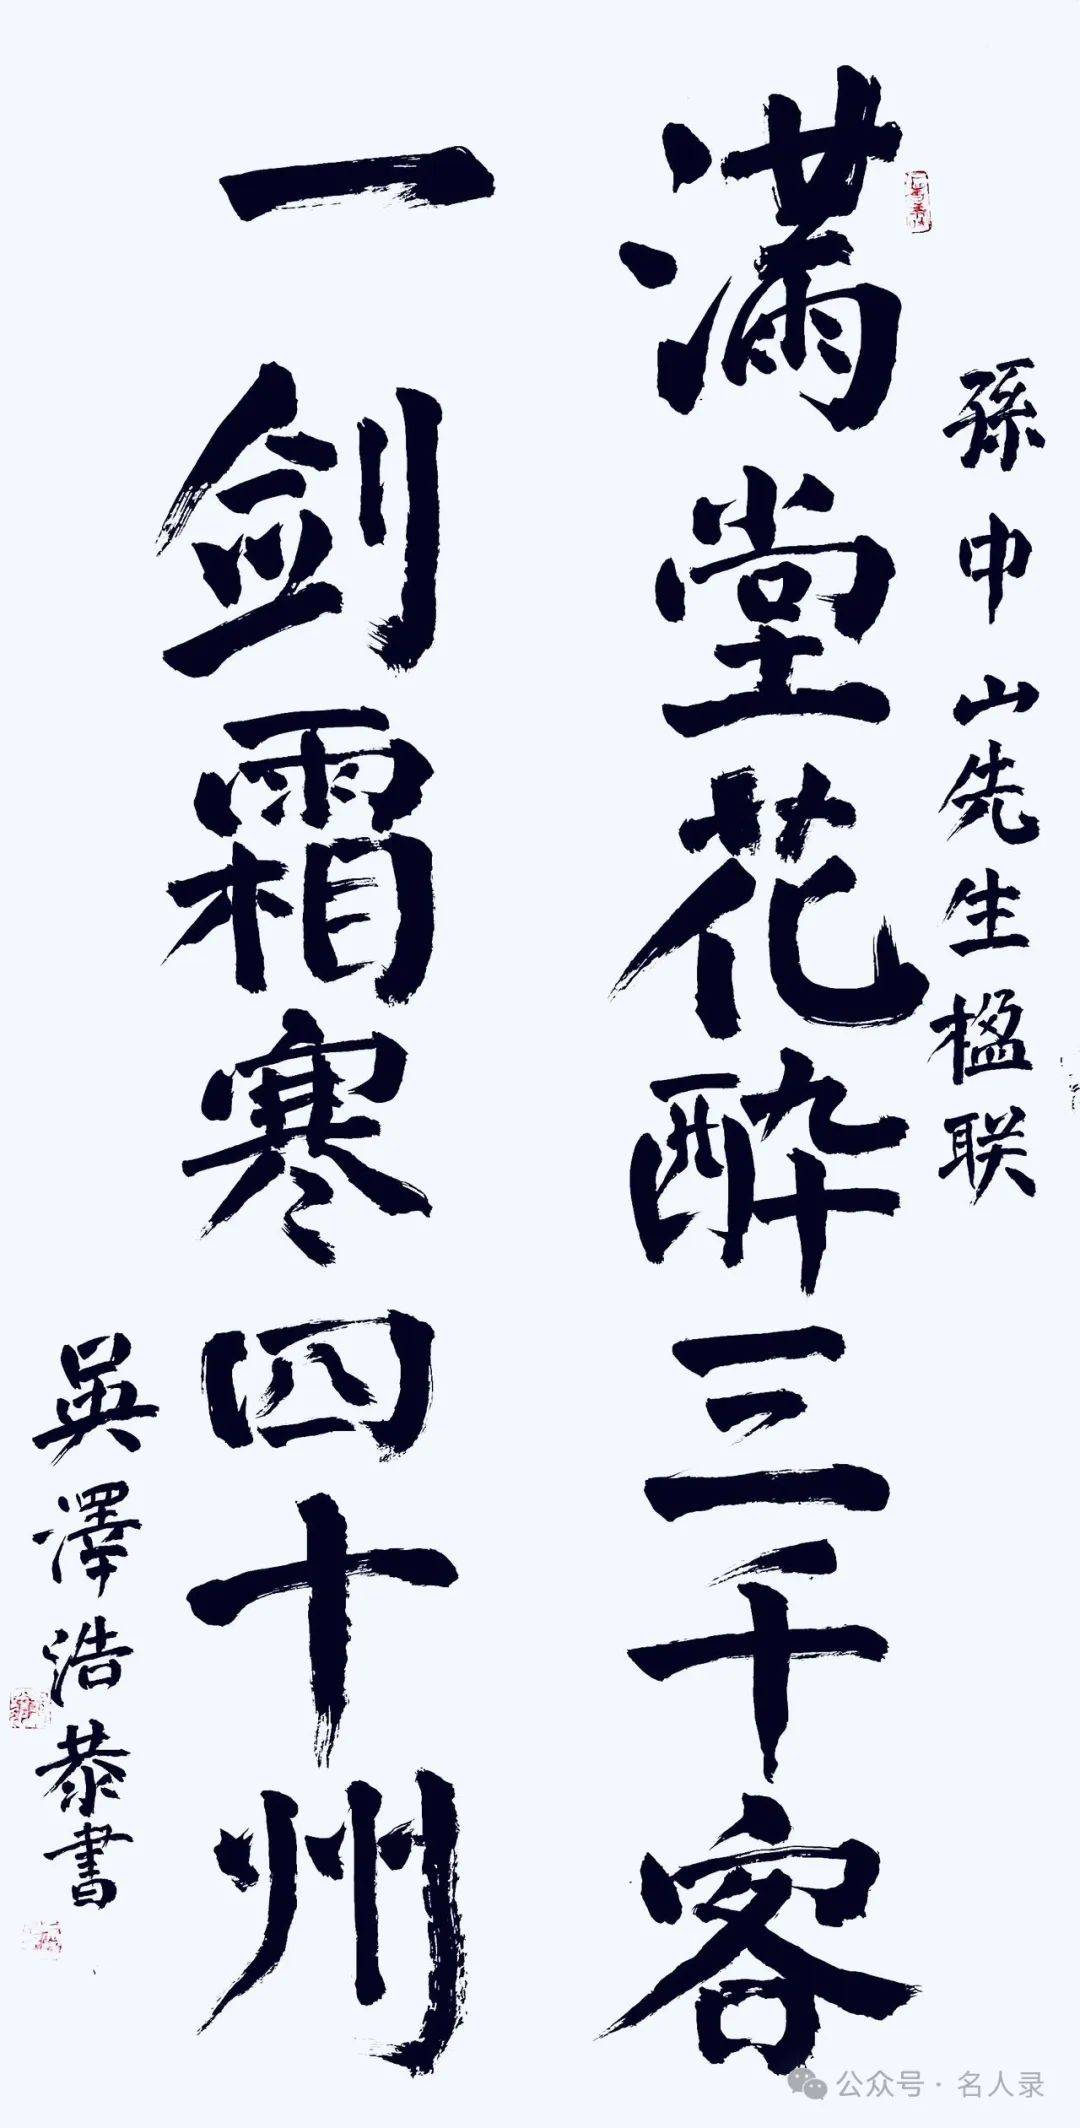 孫中山先生楹联
满堂花醉三千客
一剑霜寒四十州
吳澤浩恭書
公众号·名人录